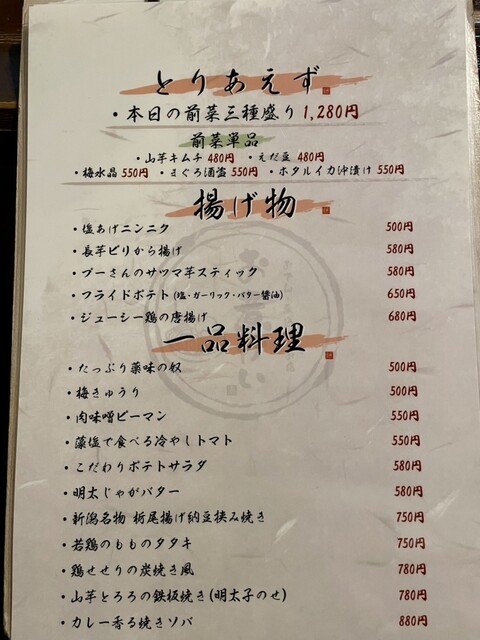 とりあえず
・本日の前菜三種盛り 1,280円
前菜単品
・山芋キムチ 480円 ・えだ豆 480円
・梅水晶 550円 ・まぐろ酒盗 550円 ・ホタルイカ沖漬け 550円
揚げ物
・塩あげニンニク 500円
・長芋ピリから揚げ 580円
・プーさんのサツマ芋スティック 580円
・フライドポテト (塩・ガーリック・バター醤油) 650円
・ジューシー鶏の唐揚げ 680円
一品料理
・たっぷり薬味の奴 500円
・梅きゅうり 500円
・肉味噌ピーマン 550円
・藻塩で食べる冷やしトマト 550円
・こだわりポテトサラダ 580円
・明太じゃがバター 580円
・新潟名物 栃尾揚げ納豆挟み焼き 750円
・若鶏のもものタタキ 750円
・鶏せせりの炭焼き風 780円
・山芋とろろの鉄板焼き(明太子のせ) 780円
・カレー香る焼きソバ 880円